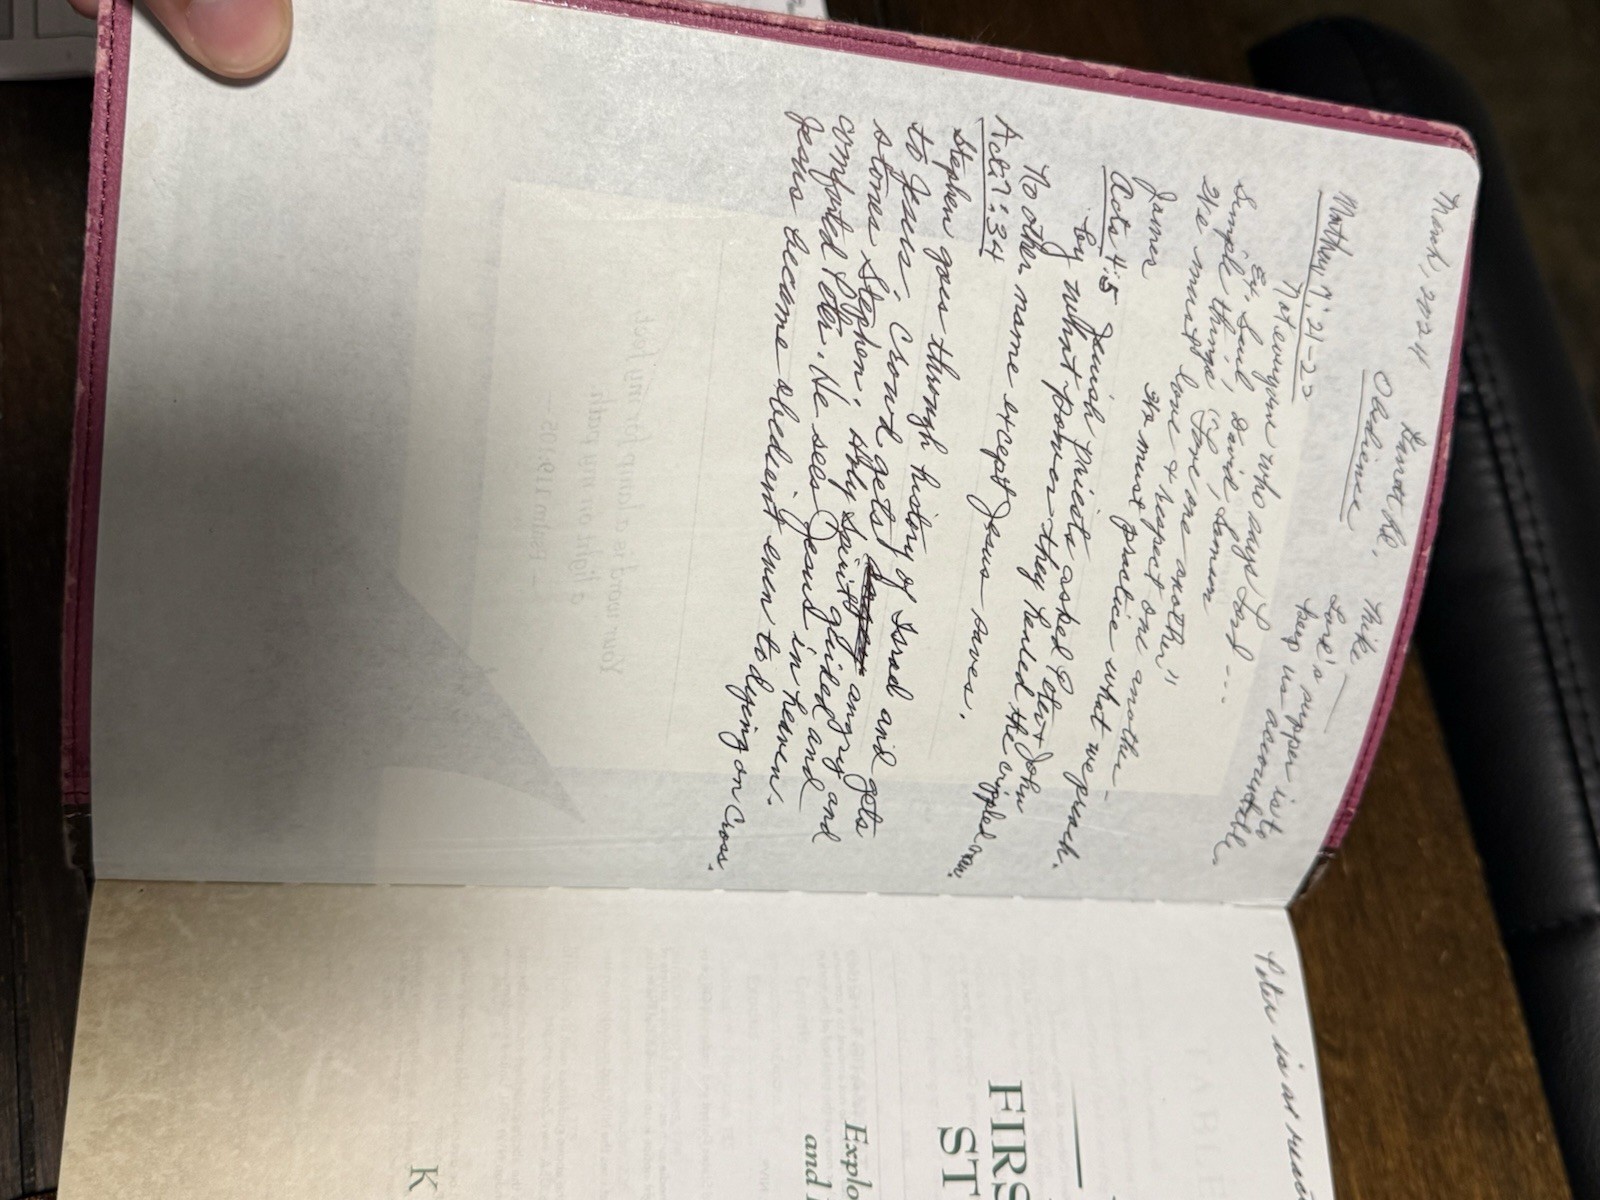 March, 2024
Mike —
Lord's supper is to
keep us accountable.
Obedience
Matthew 7:21-22
Not everyone who says Lord ...
Ex. Saul, David, Samson
Simple things, "Love one another"
We must love & respect one another —
James We must practice what we preach.
Acts 4:5 Jewish Priests asked Peter & John
by what power they healed the crippled man.
No other name except Jesus saves.
Acts 7:34
Stephen goes through history of Israel and gets
to Jesus. Crowd gets angry and
stones Stephen. Holy Spirit guided and
comforted Peter. He sees Jesus in heaven.
Jesus became obedient even to dying on Cross.
Peter is
FIRS
ST
Explo
and
K
Your word is a lamp for my feet,
a light on my path.
— PSALM 119:105 —